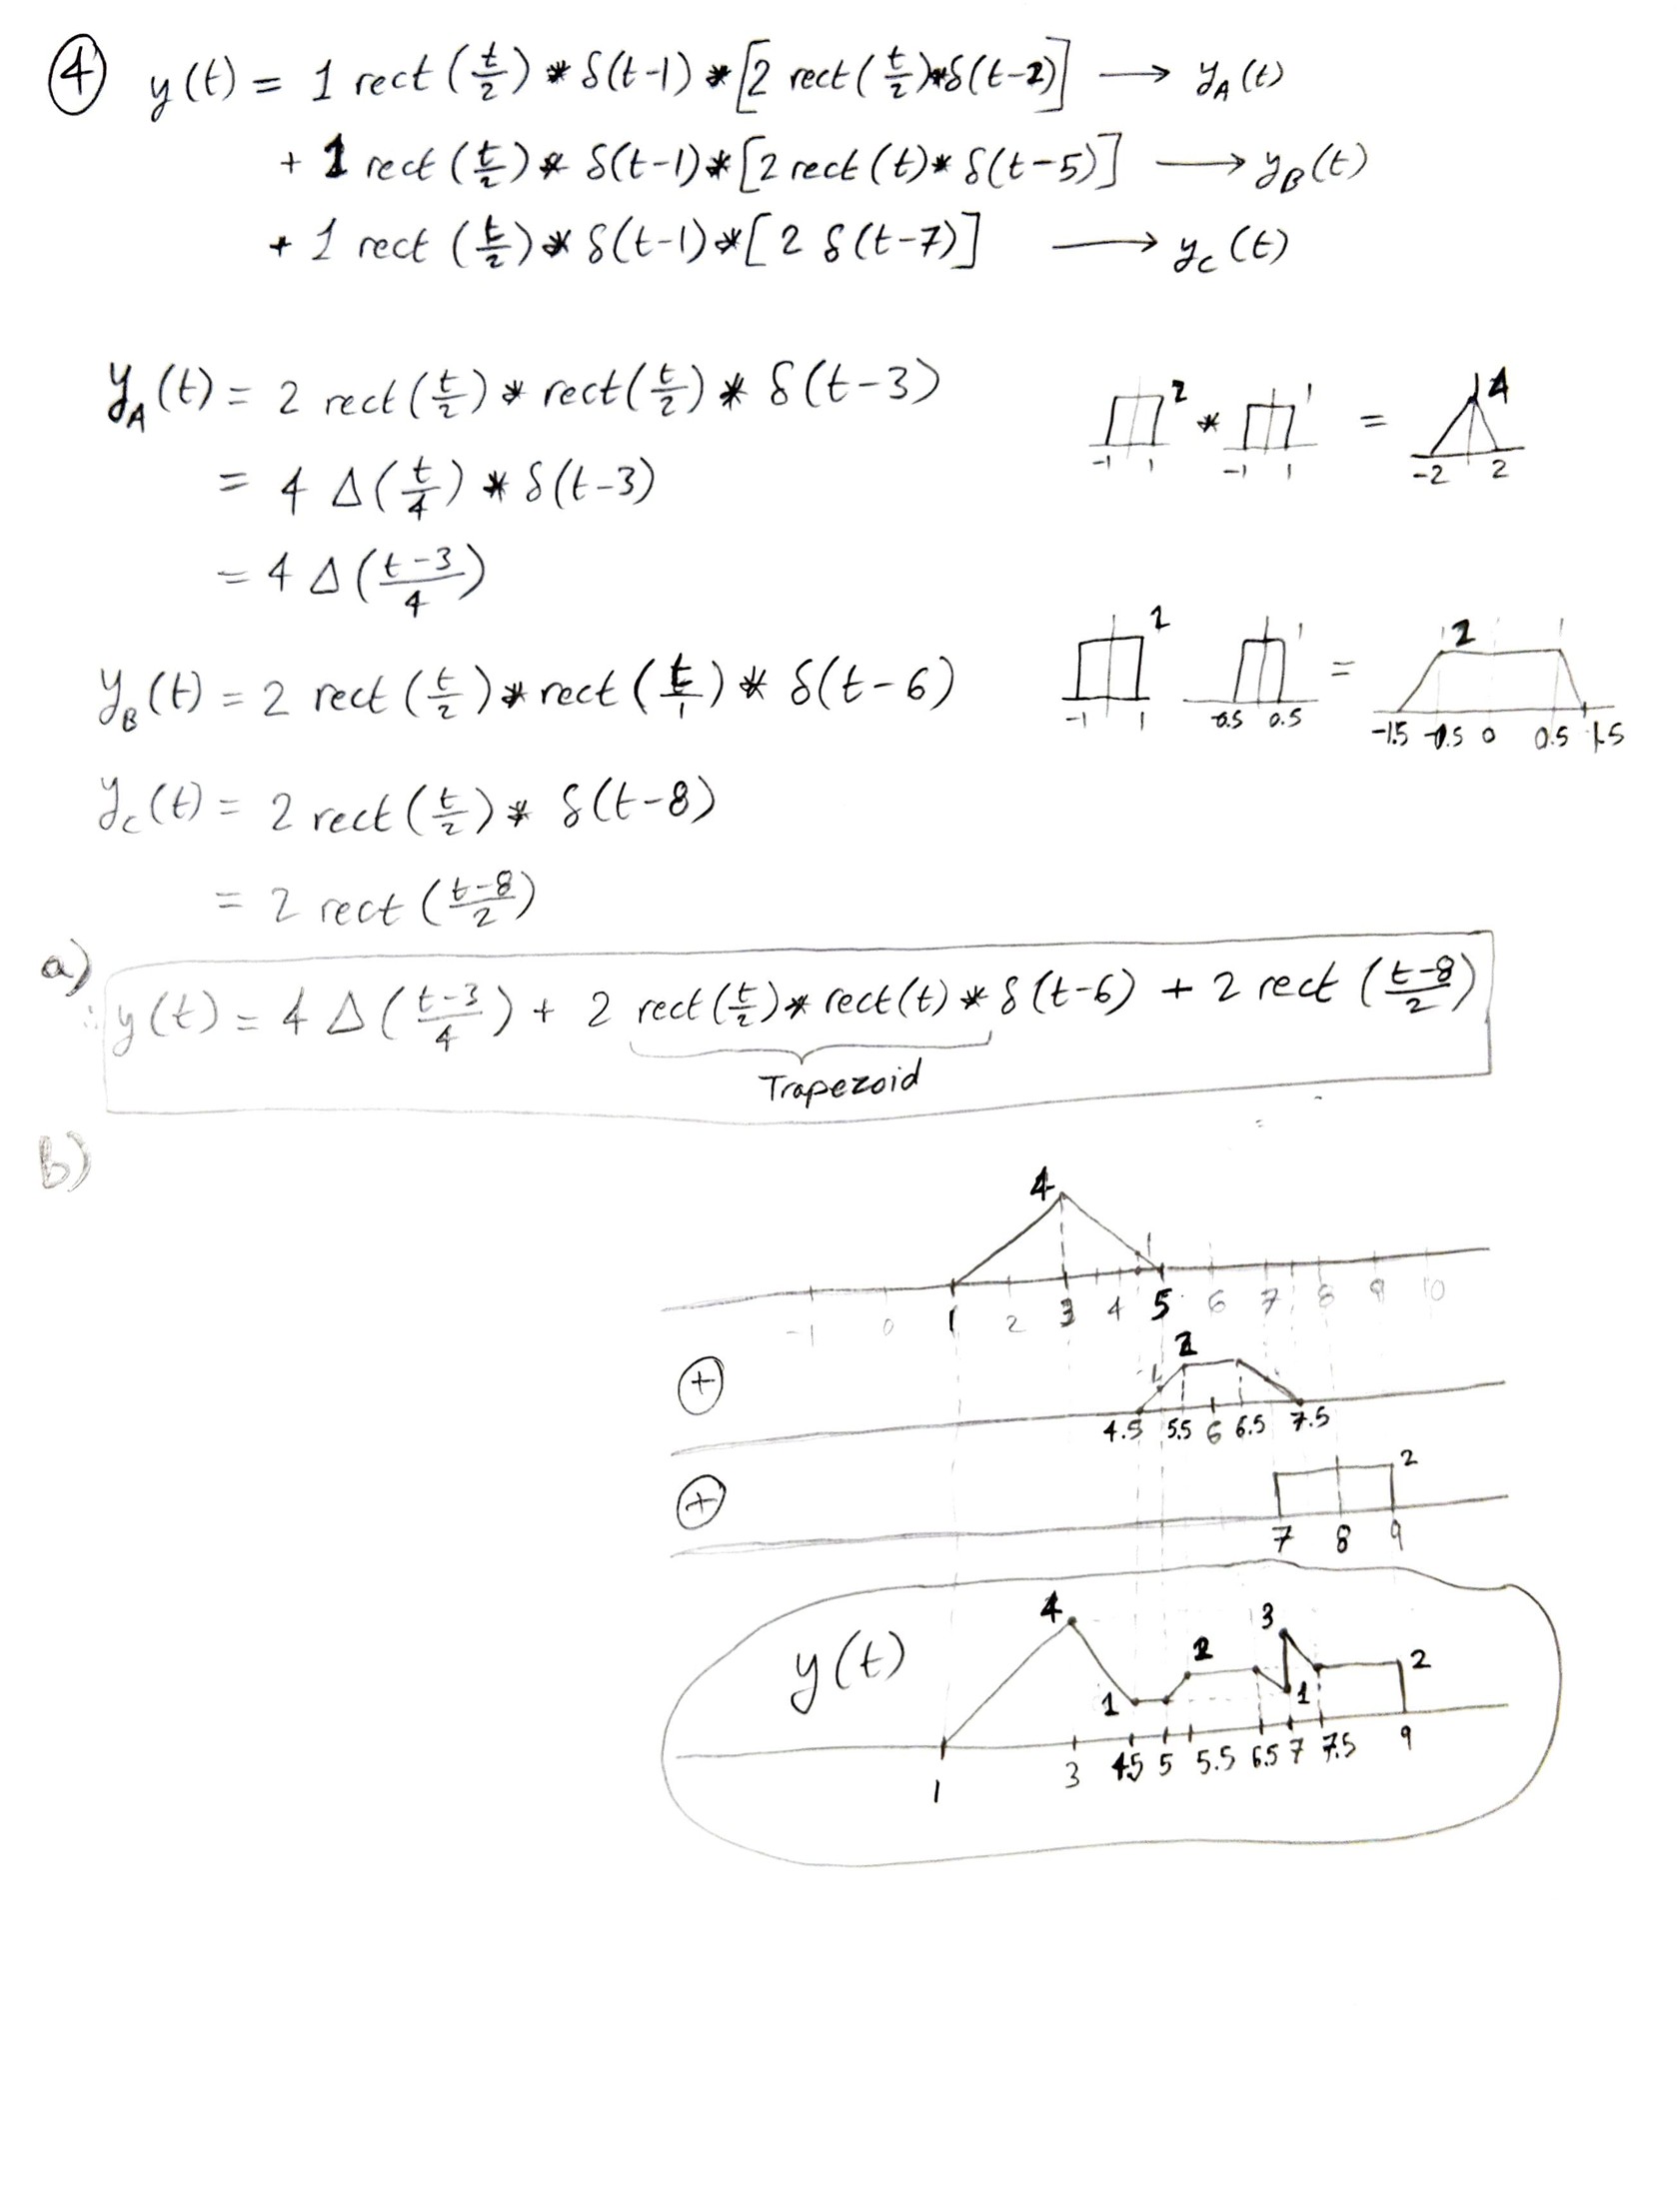 ④ y(t) = 1 rect(t/2) * δ(t-1) * [2 rect(t/2) * δ(t-2)] → y_A(t)
+ 1 rect(t/2) * δ(t-1) * [2 rect(t) * δ(t-5)] → y_B(t)
+ 1 rect(t/2) * δ(t-1) * [2 δ(t-7)] → y_C(t)
y_A(t) = 2 rect(t/2) * rect(t/2) * δ(t-3)
2 * 1 = 4
-1 1 -1 1 -2 2
= 4 Δ(t/4) * δ(t-3)
= 4 Δ((t-3)/4)
y_B(t) = 2 rect(t/2) * rect(t/1) * δ(t-6)
2 1 = 2
-1 1 -0.5 0.5 -1.5 -0.5 0 0.5 1.5
y_C(t) = 2 rect(t/2) * δ(t-8)
= 2 rect((t-8)/2)
a)
∴ y(t) = 4 Δ((t-3)/4) + 2 rect(t/2) * rect(t) * δ(t-6) + 2 rect((t-8)/2)
Trapezoid
b)
4
1
-1 0 1 2 3 4 5 6 7 8 9 10
+
2
1
4.5 5.5 6 6.5 7.5
+
2
7 8 9
y(t)
4 1 2 3 1 2
1 3 4.5 5 5.5 6.5 7 7.5 9